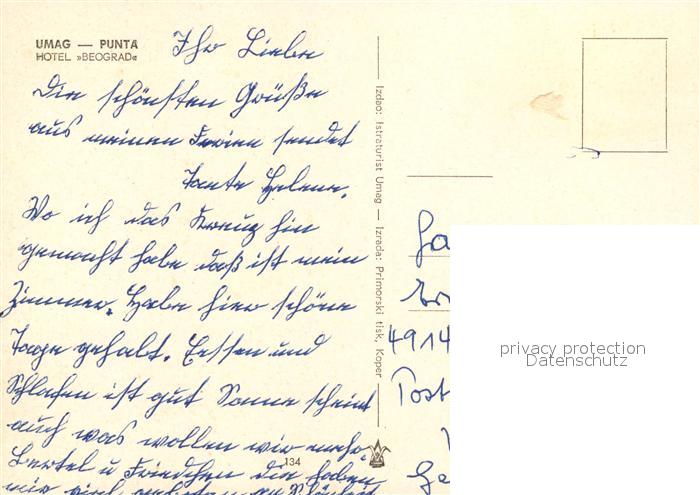 UMAG — PUNTA
HOTEL »BEOGRAD«
Ihr Lieben
Die schönsten Grüße
aus meinen Ferien sendet
Tante Helene.
Wo ich das Kreuz hin
gemacht habe daß ist mein
Zimmer. Habe hier schöne
Tage gehabt. Essen und
Schlafen ist gut Sonne scheint
auch was wollen wir mehr.
Bertel u Friedchen die haben
Izdao: Istraturist Umag — Izrada: Primorski tisk, Koper
134
4914
Post
privacy protection
Datenschutz